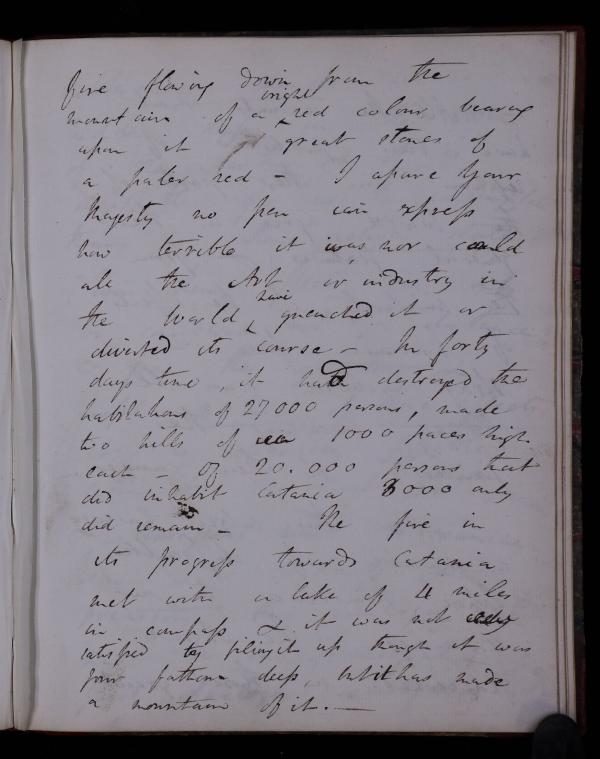 fire flowing down from the
mountain of a bright red colour bearing
upon it great stones of
a paler red - I assure your
Majesty no pen can express
how terrible it was nor could
all the Art or industry in
the World have quenched it or
diverted its course - In forty
days time, it had destroyed the
habitations of 27000 persons, made
two hills of 1000 paces high
each - Of 20.000 persons that
did inhabit Catania 3000 only
did remain - The fire in
its progress towards Catania
met with a lake of 4 miles
in compass & it was not only
satisfied to fill it up though it was
four fathom deep, but it has made
a mountain of it. -